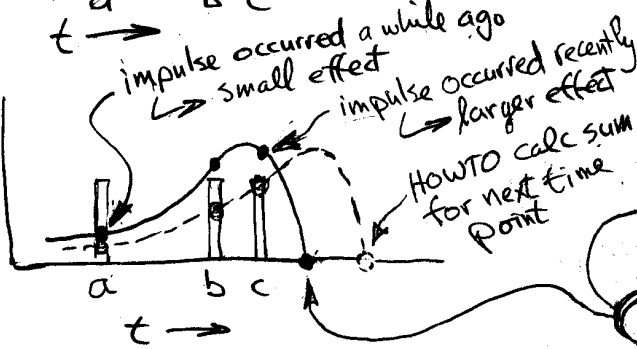 t →
impulse occurred a while ago
↳ small effect
impulse occurred recently
↳ larger effect
HOWTO calc sum
for next time
point
a b c
t →